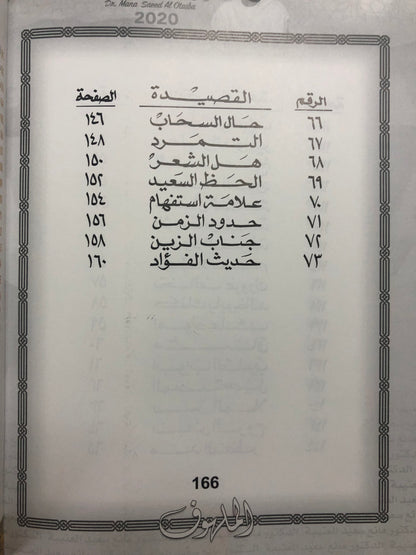 Dr. Mana Saeed Al Otaiba
2020
الرقم القصيدة الصفحة
٦٦ حال السحاب ١٤٦
٦٧ التمرد ١٤٨
٦٨ هل الشعر ١٥٠
٦٩ الحظ السعيد ١٥٢
٧٠ علامة استفهام ١٥٤
٧١ حدود الزمن ١٥٦
٧٢ جناب الزين ١٥٨
٧٣ حديث الفؤاد ١٦٠
166
الملهوف